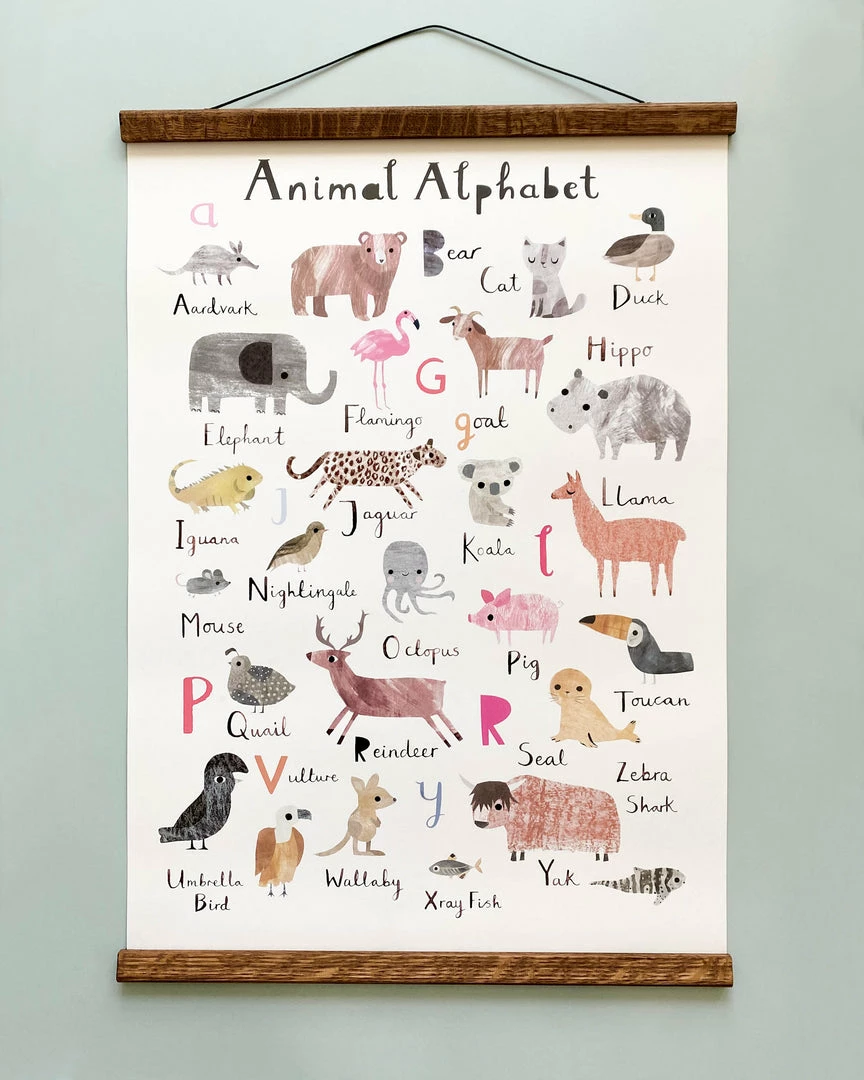 Animal Alphabet
a
Aardvark
Bear
Cat
Duck
Elephant
Flamingo
G
goat
Hippo
Iguana
J
Jaguar
Koala
l
Llama
Mouse
Nightingale
Octopus
Pig
P
Quail
Reindeer
R
Seal
Toucan
Umbrella
Bird
Vulture
Wallaby
Xray Fish
y
Yak
Zebra
Shark